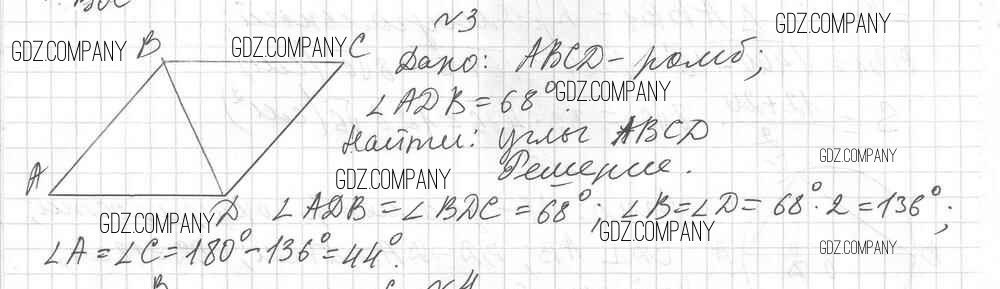 №3
GDZ.COMPANY
GDZ.COMPANY B GDZ.COMPANY C Дано: ABCD – ромб;
∠ADB = 68°. GDZ.COMPANY
Найти: углы ABCD
A GDZ.COMPANY Решение. GDZ.COMPANY
GDZ.COMPANY D ∠ADB = ∠BDC = 68°; ∠B = ∠D = 68°·2 = 136°;
GDZ.COMPANY GDZ.COMPANY
∠A = ∠C = 180° – 136° = 44°.
№4